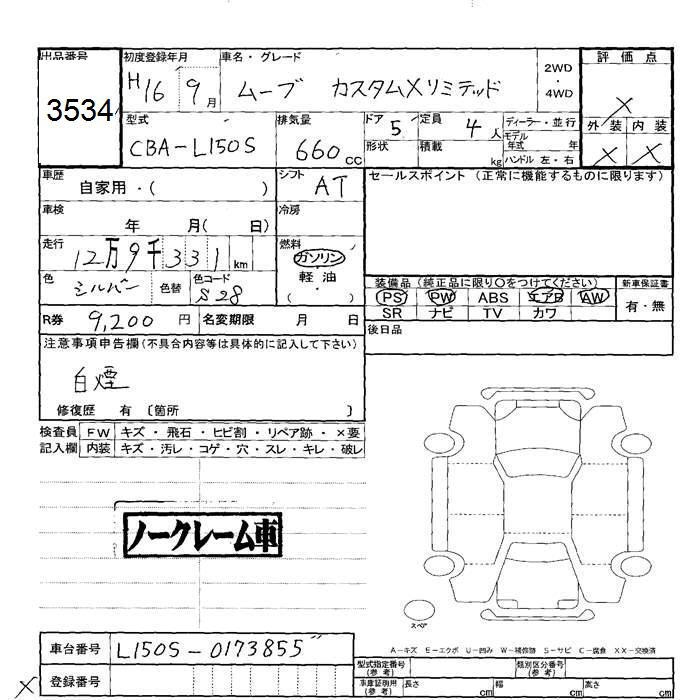 出品番号
3534
初度登録年月
H16 9月
車名・グレード
ムーブ カスタムXリミテッド
2WD
・
4WD
評価点
X
外装 内装
X X
型式
CBA-L150S
排気量
660 cc
ドア 5
形状
定員 4 人
積載 kg
ディーラー・並行
モデル年式 年
ハンドル 左・右
車歴
自家用・( )
シフト
AT
セールスポイント (正常に機能するものに限ります)
車検
年 月( 日)
冷房
走行
12万9千331 km
燃料
ガソリン
軽油
・
( )
色
シルバー
色替
色コード
S28
装備品 (純正品に限り○をつけてください)
新車保証書
PS PW ABS エアB AW
有・無
SR ナビ TV カワ
R券 9,200 円
名変期限 月 日
後日品
注意事項申告欄 (不具合内容等は具体的に記入して下さい)
白煙
修復歴 有 〔箇所 〕
検査員 FW キズ・飛石・ヒビ割・リペア跡・×要
記入欄 内装 キズ・汚レ・コゲ・穴・スレ・キレ・破レ
ノークレーム車
スペア
車台番号 L150S-0173855
A-キズ E-エクボ U-凹み W-補修跡 S-サビ C-腐食 XX-交換済
X 登録番号
型式指定番号 (参考)
類別区分番号 (参考)
車庫証明用 (参考) 長さ cm 幅 cm 高さ cm